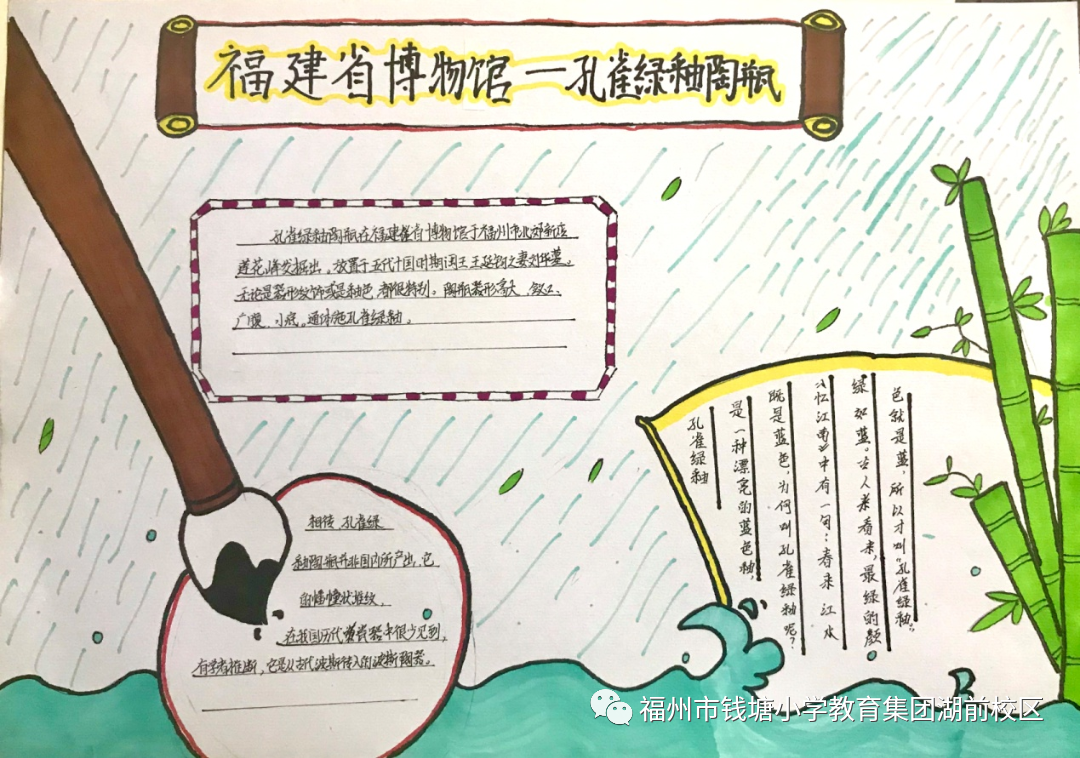 福建省博物馆—孔雀绿釉陶瓶
孔雀绿釉陶瓶在福建省博物馆于福州市北郊新店
莲花峰发掘出,放置于五代十国时期闽王王延钧之妻刘华墓。
无论是器形纹饰或是釉色,都很特别。陶瓶器形高大、敛口、
广腹、小底。通体施孔雀绿釉。
孔雀绿釉
是一种漂亮的蓝色釉,
既是蓝色,为何叫孔雀绿釉呢?
《忆江南》中有一句:春来江水
绿如蓝。古人来看来,最绿的颜
色就是蓝,所以才叫“孔雀绿釉”。
相传 孔雀绿
釉陶瓶并非国内所产出,它
的 状堆纹,
在我国历代 瓷器中很少见到,
有学者推断,它是从古代波斯传入的波斯陶器。
福州市钱塘小学教育集团湖前校区